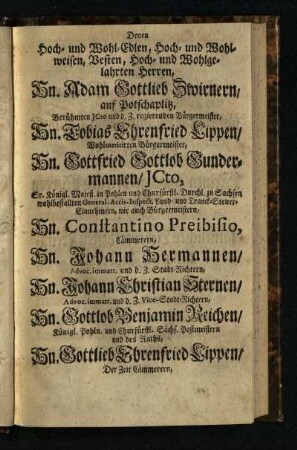 Denen
Hoch- und Wohl-Edlen, Hoch- und Wohl-
weisen, Vesten, Hoch- und Wohlge-
lahrten Herren,
Hn. Adam Gottlieb Zwirnern,
auf Potschaplitz,
Berühmten JCto und d. Z. regierenden Bürgermeister,
Hn. Tobias Ehrenfried Lippen/
Wohlmeritirten Bürgermeister,
Hn. Gottfried Gottlob Gunder-
mannen/ JCto,
Sr. Königl. Majest. in Pohlen und Churfürstl. Durchl. zu Sachsen
wohlbestallten General-Accis-Inspect. Land- und Tranck-Steuer-
Einnehmern, wie auch Bürgermeistern,
Hn. Constantino Preibisio,
Cämmerern,
Hn. Johann Hermannen/
Advoc. immatr. und d. Z. Stadt-Richtern,
Hn. Johann Christian Sternen/
Advoc. immatr. und d. Z. Vice-Stadt-Richtern,
Hn. Gottlob Benjamin Reichen/
Königl. Pohln. und Churfürstl. Sächs. Postmeistern
und des Raths,
Hn. Gottlieb Ehrenfried Lippen/
Der Zeit Cämmerern,